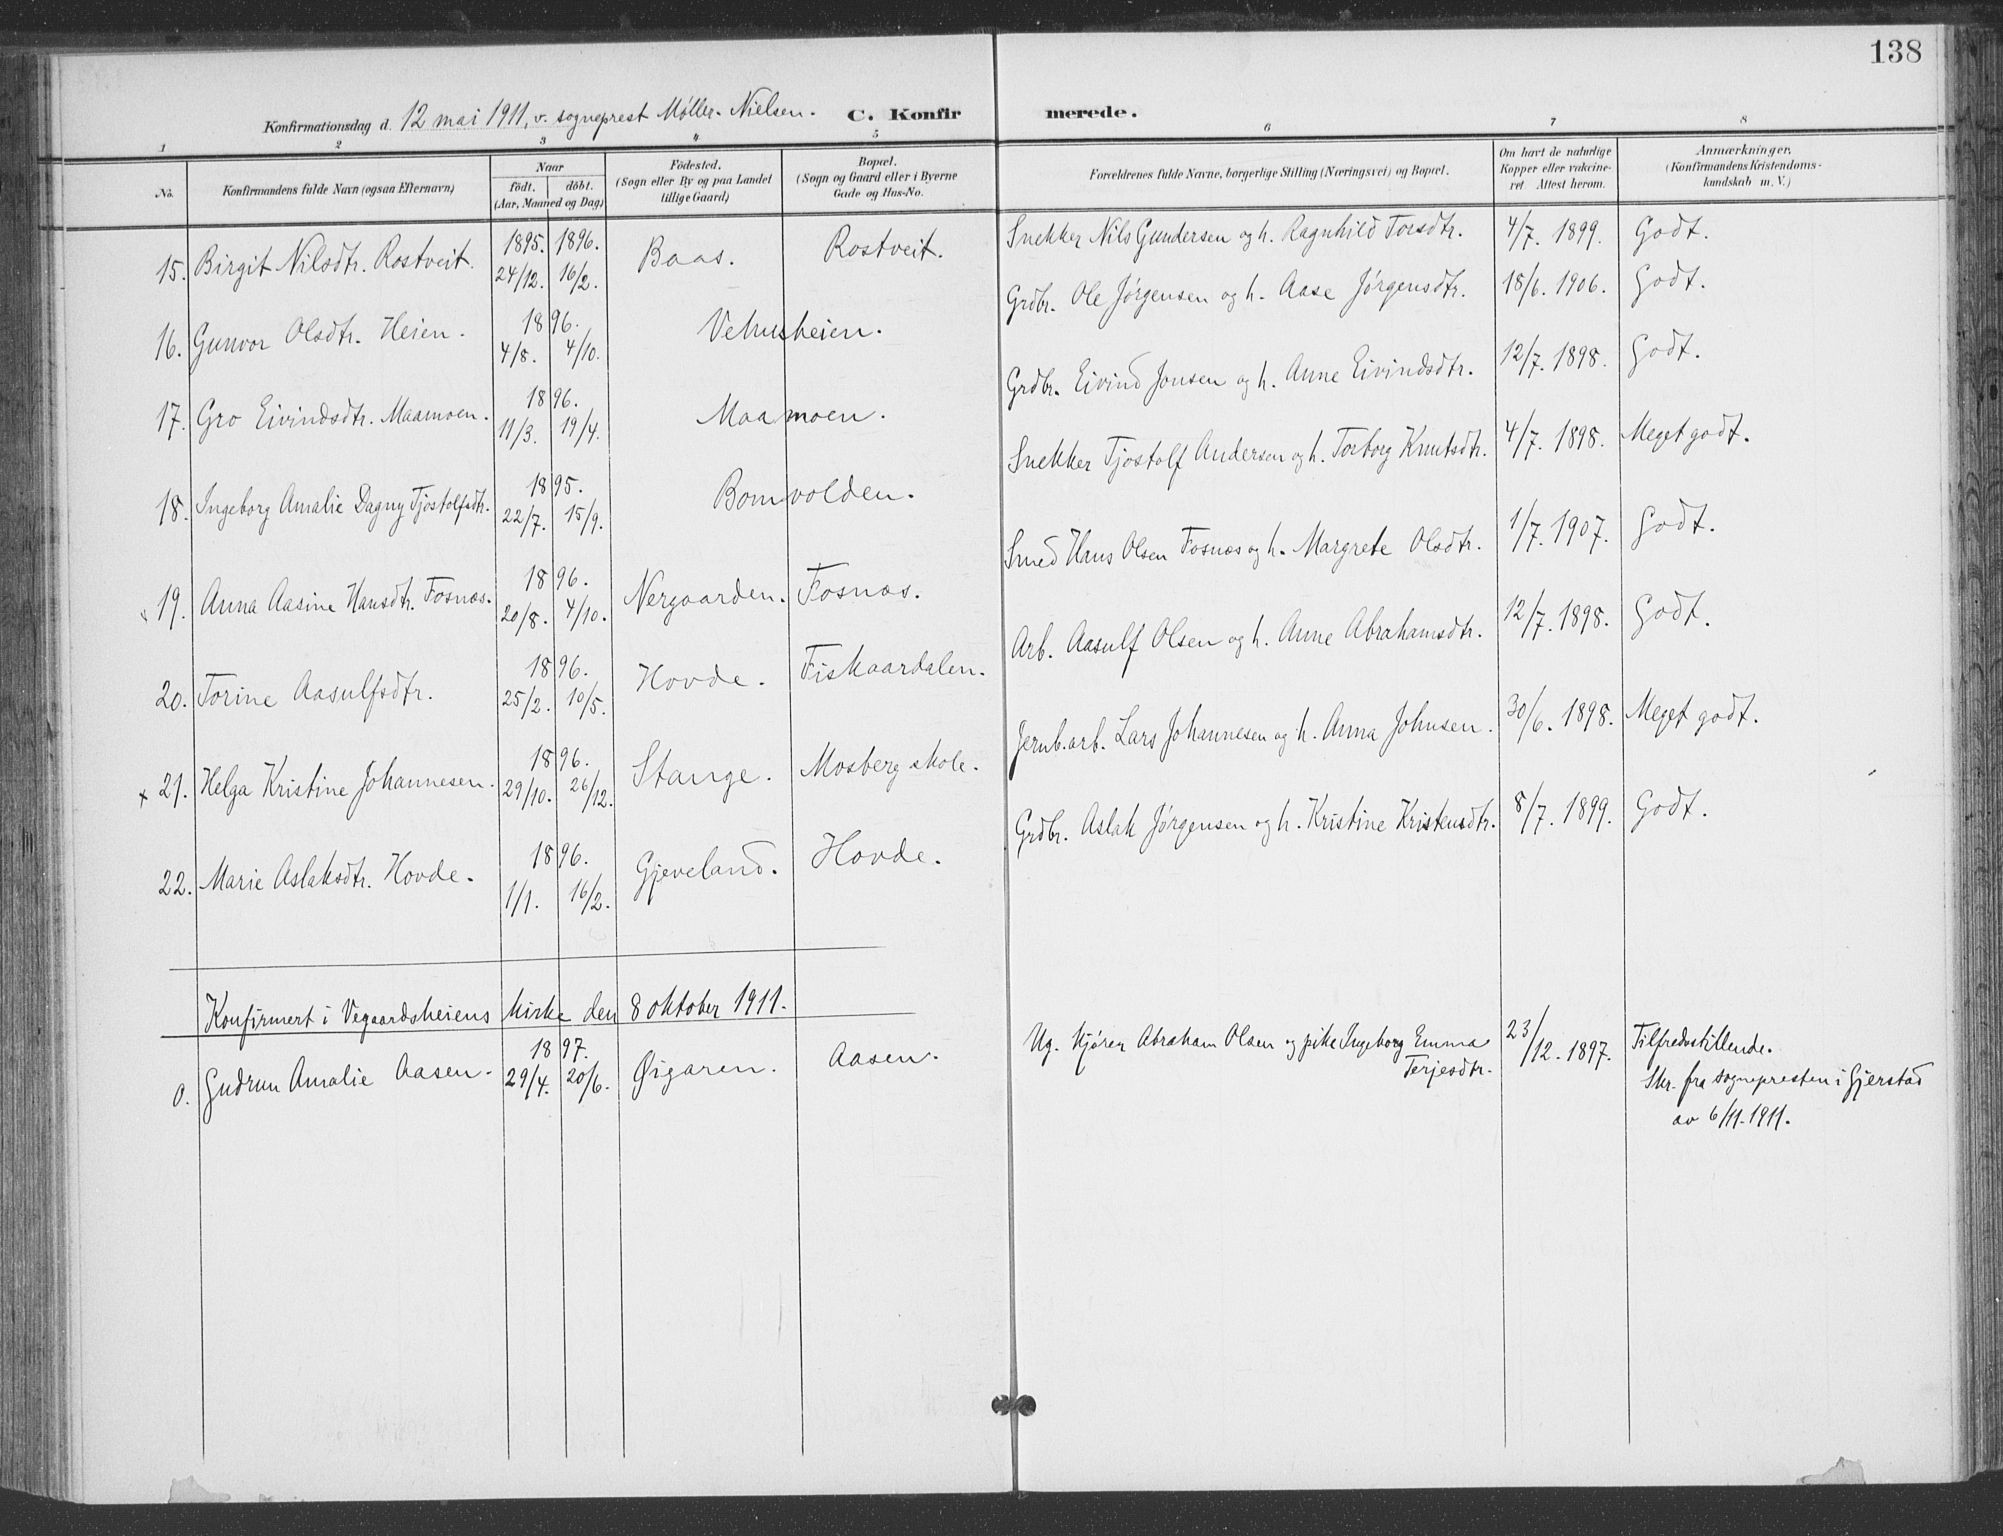 138
Konfirmationsdag d. 12 mai 1911, v. sogneprest Møller-Nielsen. C. Konfirmerede.
1 2 3 4 5 6 7 8
No. Konfirmandens fulde Navn (ogsaa Efternavn) Naar født. døbt. (Aar, Maaned og Dag) Födested. (Sogn eller By og paa Landet tillige Gaard) Bopæl. (Sogn og Gaard eller i Byerne Gade og Hus-No. Forældrenes fulde Navne, borgerlige Stilling (Næringsvei) og Bopæl. Om havt de naturlige Kopper eller vakcineret. Attest herom. Anmærkninger. (Konfirmandens Kristendomskundskab m. V.)
15. Birgit Nilsdtr. Rostveit. 1895. 24/12. 1896. 16/2. Baas. Rostveit. Snekker Nils Gundersen og h. Ragnhild Torsdtr. 4/7. 1899. Godt.
16. Gunvor Olsdtr. Heien. 1896. 4/8. 4/10. Vehusheien. Grdbr. Ole Jørgensen og h. Aase Jørgensdtr. 18/6. 1906. Godt.
17. Gro Eivindsdtr. Maamoen. 1896. 11/3. 19/4. Maamoen. Grdbr. Eivind Jonsen og h. Anne Eivindsdtr. 12/7. 1898. Godt.
18. Ingeborg Amalie Dagny Tjostolfsdtr. 1895. 22/7. 15/9. Bomvolden. Snekker Tjostolf Andersen og h. Torborg Knutsdtr. 4/7. 1898. Meget godt.
19. Anna Aasine Hansdtr. Fosnæs. 1896. 20/8. 4/10. Nergaarden. Fosnæs. Smed Hans Olsen Fosnæs og h. Margrete Olsdtr. 1/7. 1907. Godt.
20. Torine Aasulfsdtr. 1896. 25/2. 10/5. Hovde. Fiskaardalen. Arb. Aasulf Olsen og h. Anne Abrahamsdtr. 12/7. 1898. Godt.
x 21. Helga Kristine Johannesen. 1896. 29/10. 26/12. Stange. Mosberg skole. Jernb.arb. Lars Johannesen og h. Anna Johnsen. 30/6. 1898. Meget godt.
22. Marie Aslaksdtr. Hovde. 1896. 1/1. 16/2. Gjeveland. Hovde. Grdbr. Aslak Jørgensen og h. Kristine Kristensdtr. 8/7. 1899. Godt.
Konfirmert i Vegaardsheiens kirke den 8 oktober 1911.
0. Gudrun Amalie Aasen. 1897. 29/4. 20/6. Øigaren. Aasen. Ug. Kjører Abraham Olsen og pike Ingeborg Emma Terjesdtr. 23/12. 1897. Tilfredsstillende.
Skr. fra sognepresten i Gjerstad
av 6/11. 1911.